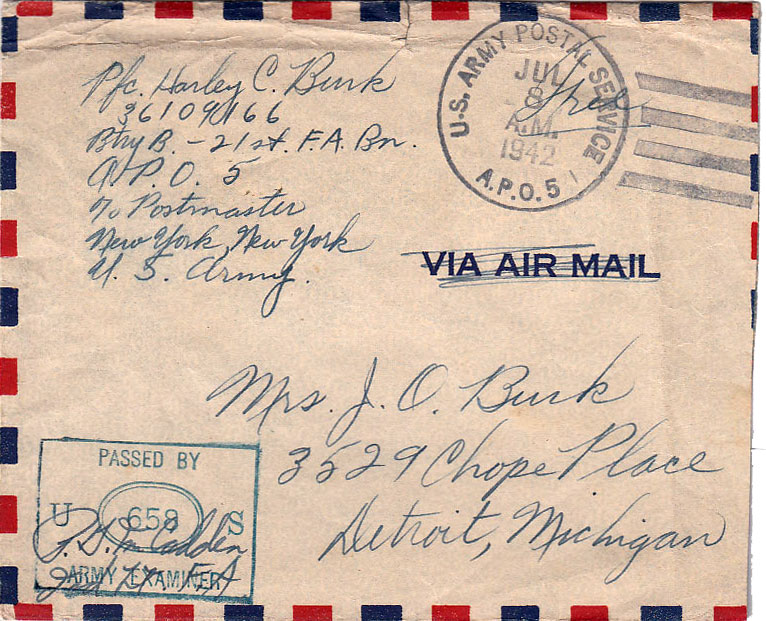 Pfc. Harley C. Burk
36109166
Btry B. - 21st. F.A. Bn.
A.P.O. 5
c/o Postmaster
New York, New York
U. S. Army.
U.S. ARMY POSTAL SERVICE
JUL
8
A.M.
1942
A.P.O. 5
Free
VIA AIR MAIL
Mrs. J. O. Burk
3529 Chope Place
Detroit, Michigan
PASSED BY
U 658 S
ARMY EXAMINER
2nd Lt. F.A.